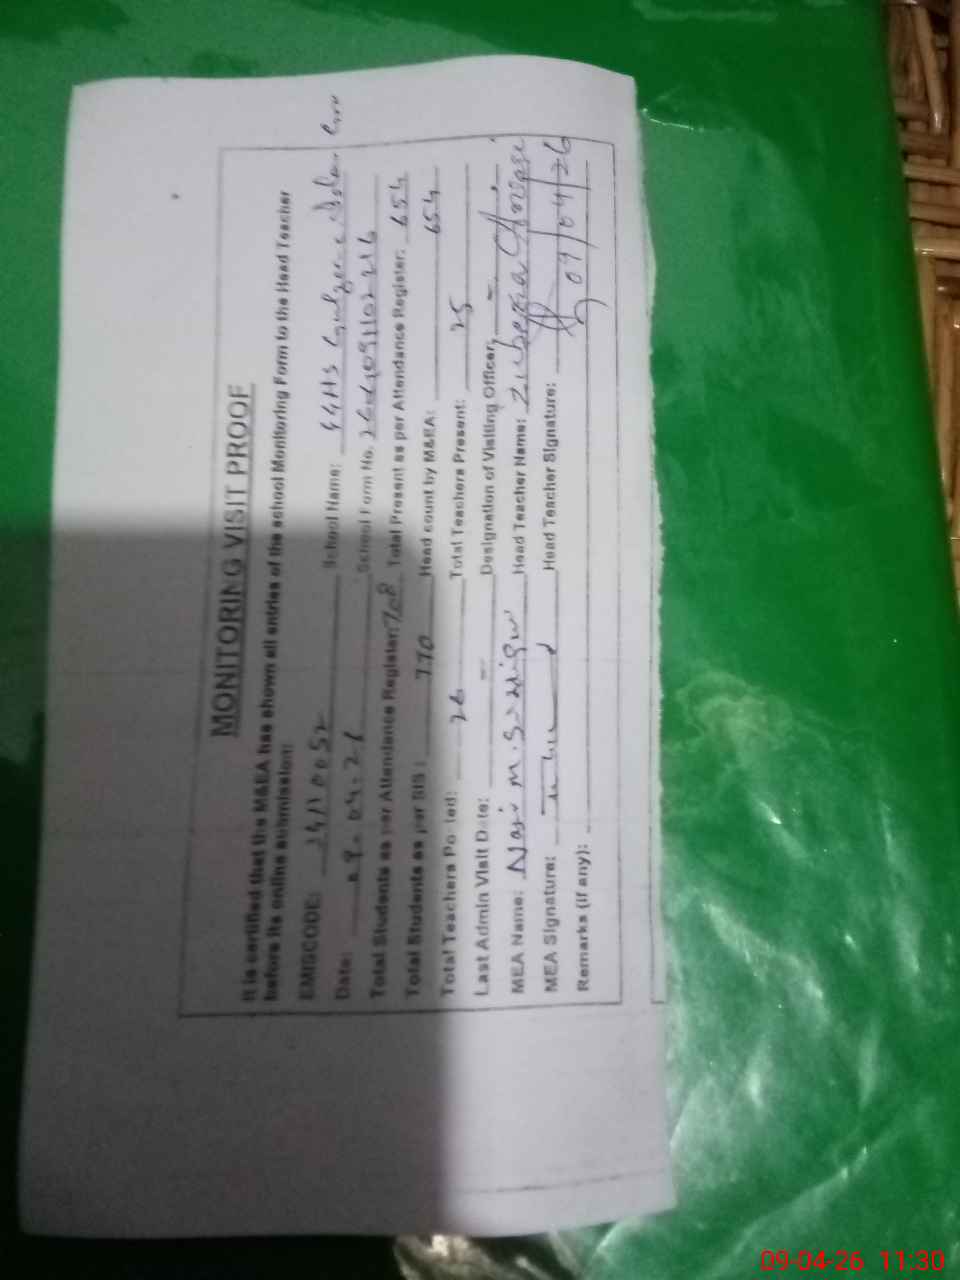 MONITORING VISIT PROOF
It is certified that the M&EA has shown all entries of the school Monitoring Form to the Head Teacher
before its online submission:
EMISCODE: School Name: GGHS
Date: 09.04.26 School Form No.
Total Students as per Attendance Register: 708 Total Present as per Attendance Register: 654
Total Students as per SIS: 770 Head count by M&EA: 654
Total Teachers Posted: 26 Total Teachers Present: 25
Last Admin Visit Date: - Designation of Visiting Officer: -
MEA Name: M. Head Teacher Name:
MEA Signature: Head Teacher Signature:
09/04/26
Remarks (if any):
09-04-26 11:30